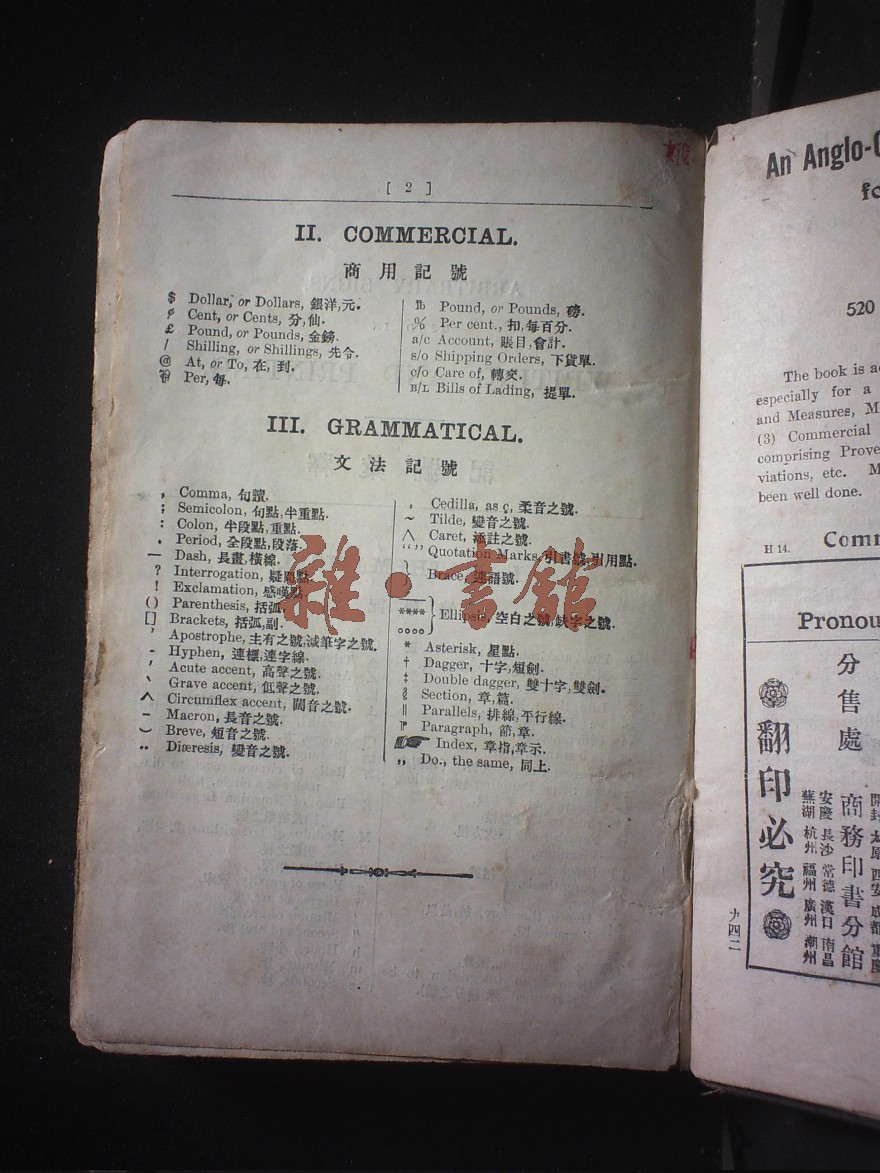 [ 2 ]
II. COMMERCIAL.
商用記號
$ Dollar, or Dollars, 銀洋,元.
¢ Cent, or Cents, 分,仙.
£ Pound, or Pounds, 金鎊.
/ Shilling, or Shillings, 先令.
@ At, or To, 在, 到.
⅌ Per, 每.
℔ Pound, or Pounds, 磅.
% Per cent., 扣,每百分.
a/c Account, 賬目,會計.
s/o Shipping Orders, 下貨單.
c/o Care of, 轉交.
B/L Bills of Lading, 提單.
III. GRAMMATICAL.
文法記號
, Comma, 句讀.
; Semicolon, 句點,半重點.
: Colon, 半段點,重點.
. Period, 全段點,段落.
— Dash, 長畫,橫線.
? Interrogation, 疑問點.
! Exclamation, 感嘆點.
() Parenthesis, 括弧.
[] Brackets, 括弧,副.
' Apostrophe, 主有之號,減筆字之號.
- Hyphen, 連標,連字線.
´ Acute accent, 高聲之號.
` Grave accent, 低聲之號.
^ Circumflex accent, 闊音之號.
– Macron, 長音之號.
⌣ Breve, 短音之號.
¨ Diæresis, 變音之號.
¸ Cedilla, as ç, 柔音之號.
~ Tilde, 變音之號.
^ Caret, 添註之號.
“ ” Quotation Marks, 引書號,引用點.
} Brace, 連語號.
—
**** } Ellipsis, 空白之號,缺字之號.
oooo
* Asterisk, 星點.
† Dagger, 十字,短劍.
‡ Double dagger, 雙十字,雙劍.
§ Section, 章,篇.
‖ Parallels, 排線,平行線.
¶ Paragraph, 節,章.
☞ Index, 章指,章示.
,, Do., the same, 同上.
雜·書館
An Anglo-C
fo
520
The book is a
especially for a
and Measures, M
(3) Commercial
comprising Prove
viations, etc. M
been well done.
H 14.
Comm
Pronou
分售處
商務印書分館
安慶 長沙 常德 漢口 南昌
蕪湖 杭州 福州 廣州 潮州
翻印必究
九四二